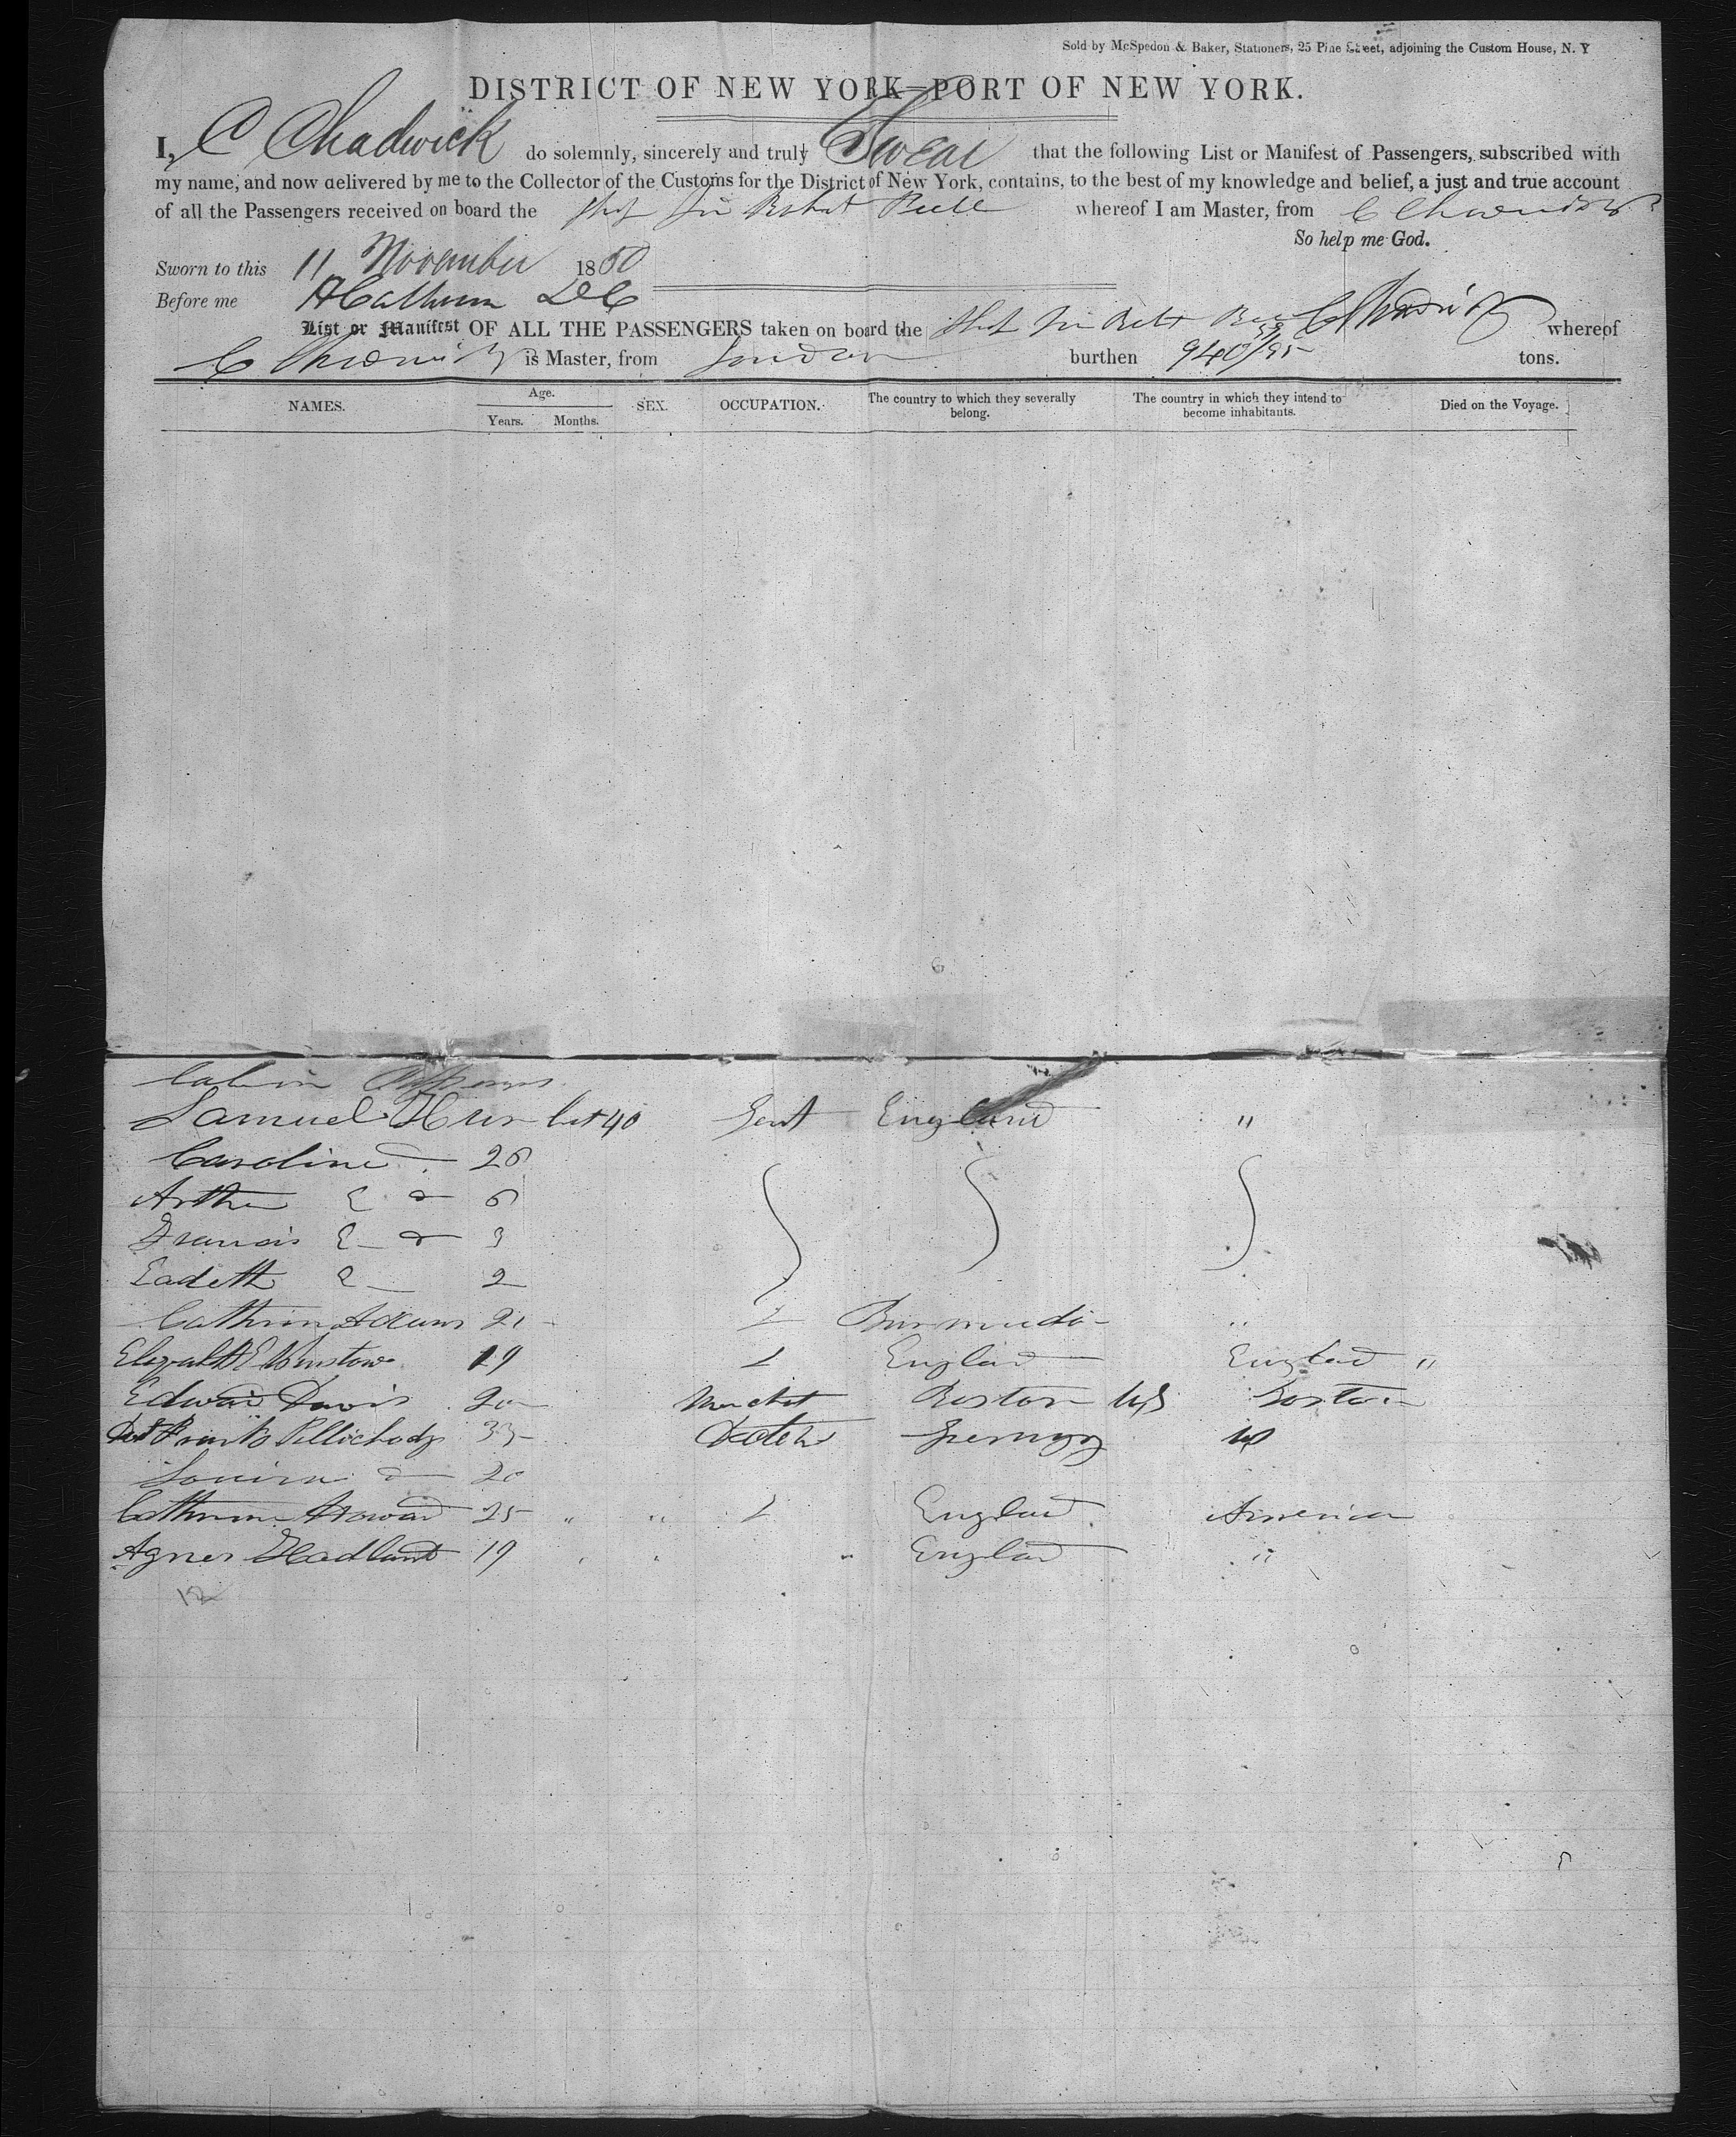 Sold by McSpedon & Baker, Stationers, 25 Pine Street, adjoining the Custom House, N. Y
DISTRICT OF NEW YORK—PORT OF NEW YORK.
I, C Chadwick do solemnly, sincerely and truly Swear that the following List or Manifest of Passengers, subscribed with
my name, and now delivered by me to the Collector of the Customs for the District of New York, contains, to the best of my knowledge and belief, a just and true account
of all the Passengers received on board the Ship Sir Robert Peel whereof I am Master, from
So help me God.
Sworn to this 11 November 1850
Before me
List or Manifest OF ALL THE PASSENGERS taken on board the Ship Sir Robt whereof
is Master, from London burthen 940 tons.
NAMES. Age. SEX. OCCUPATION. The country to which they severally belong. The country in which they intend to become inhabitants. Died on the Voyage.
Years. Months.
Cabin
Samuel 40 Gent England "
Caroline 26
Arthur E do 6
Francis E do 3
Eadeth E 2
Adams 21 "
19 England England "
Edward Davis 20 Boston US Boston
33
Louisa do 20
Howard 25 " " England America
Agnes Hadland 19 " " " England "
12